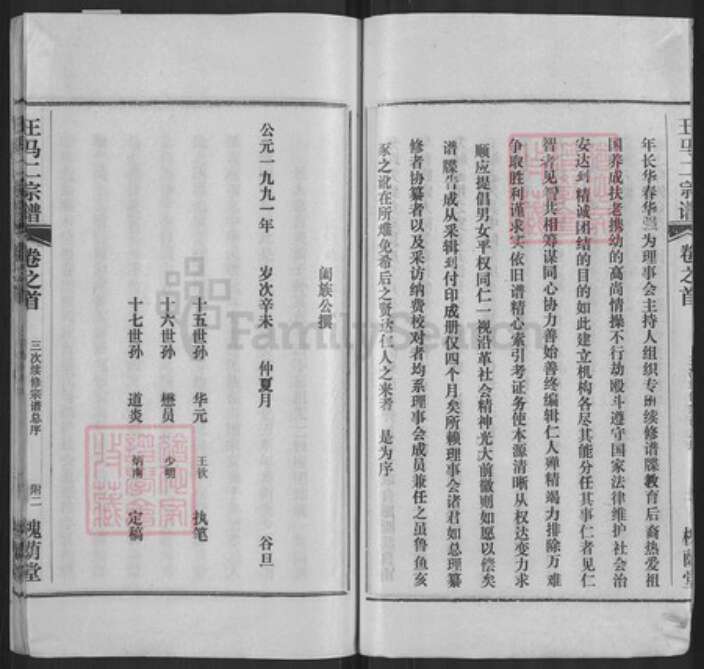 王马二宗谱
卷之首
年长华春华 为理事会主持人组织专班续修谱牒教育后裔热爱祖
国养成扶老携幼的高尚情操不行劫殴斗遵守国家法律维护社会治
安达到精诚团结的目的如此建立机构各尽其能分任其事仁者见仁
智者见智共相筹谋同心协力善始善终编辑仁人殚精竭力排除万难
争取胜利谨求实依旧谱精心索引考证务使本源清晰从权达变力求
顺应提倡男女平权同仁一视沿革社会精神光大前徽则如愿以偿矣
谱牒告成从采辑到付印成册仅四个月矣所赖理事会诸君如总理纂
修者协纂者以及采访纳费校对者均系理事会成员兼任之虽鲁鱼亥
豕之讹在所难免希后之贤达仁人之来者 是为序
阖族公撰
公元一九九一年 岁次辛未 仲夏月 谷旦
十五世孙 华元 王钦 执笔
十六世孙 懋员 少明
十七世孙 道炎 炳南 定稿
王马二宗谱
卷之首
三次续修宗谱总序
附二
槐荫堂
FamilySearch